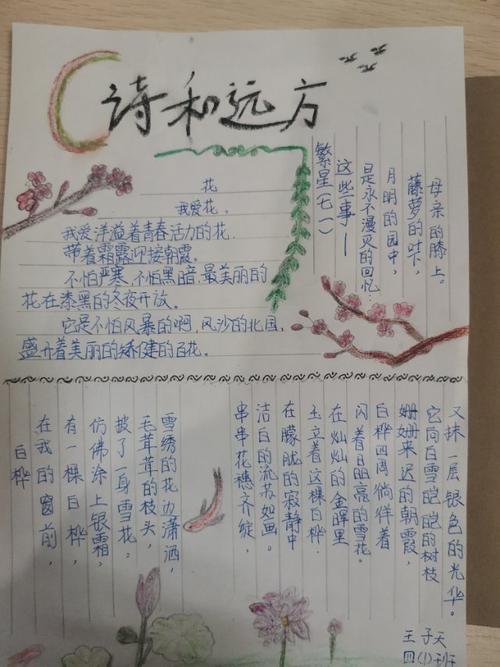 诗和远方
花
我爱花,
我爱洋溢着青春活力的花.
带着霜露迎接朝霞.
不怕严寒,不怕黑暗.最美丽的
花在漆黑的冬夜开放.
它是不怕风暴的啊,风沙的北国,
盛开着美丽的矫健的百花.
繁星(七一)
这些事——
是永不漫灭的回忆:
月明的园中,
藤萝的叶下,
母亲的膝上。
白桦
在我的窗前,
有一棵白桦,
仿佛涂上银霜,
披了一身雪花。
毛茸茸的枝头,
雪绣的花边潇洒,
串串花穗齐绽,
洁白的流苏如画。
在朦胧的寂静中
玉立着这棵白桦.
在灿灿的金晖里
闪着晶亮的雪花。
白桦四周徜徉着
姗姗来迟的朝霞,
它向白雪皑皑的树枝
又抹一层银色的光华。
王子天
四(1)班